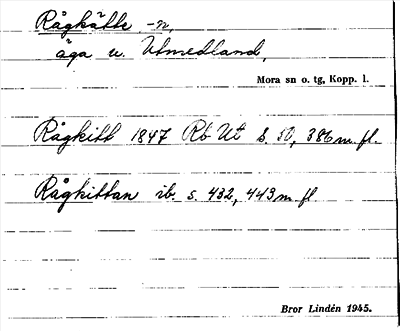 Rågkätte, -n,
äga u. Utmedland,
Mora sn o. tg, Kopp. l.
Rågkitt 1847 Rb Ut s. 50, 386 m. fl.
Rågkittan ib. s. 432, 443 m fl
Bror Lindén 1945.